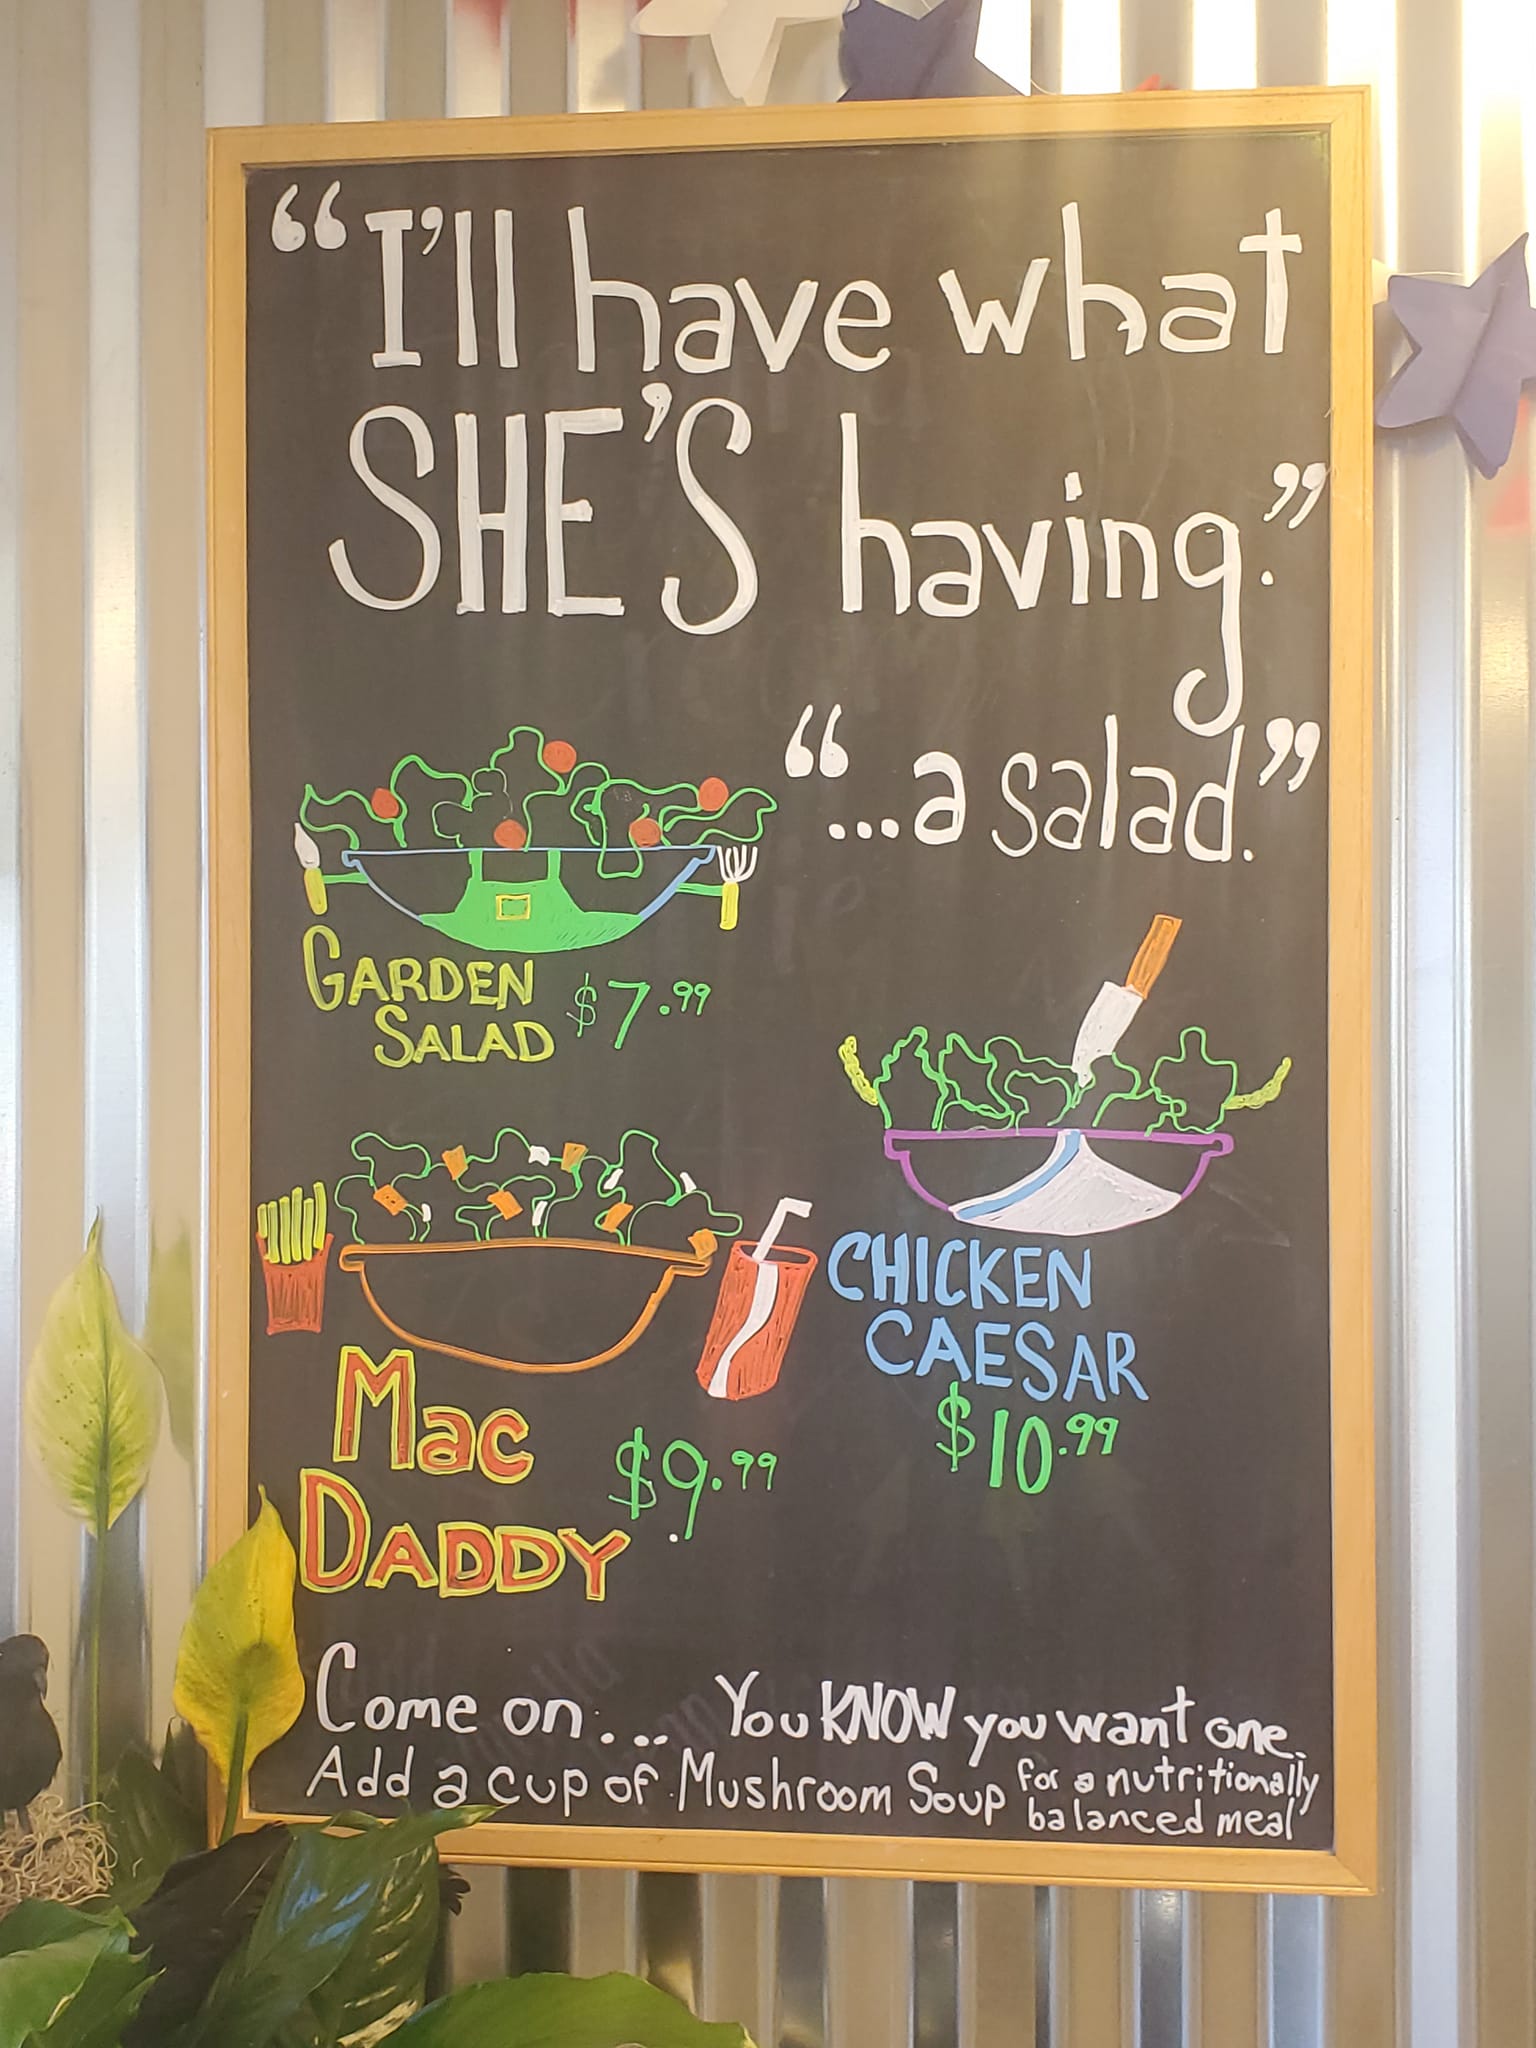 “I’ll have what
SHE’S having.”
“...a salad.”
GARDEN
SALAD $7.99
CHICKEN
CAESAR
$10.99
Mac
DADDY $9.99
Come on... You KNOW you want one.
Add a cup of Mushroom Soup for a nutritionally
balanced meal